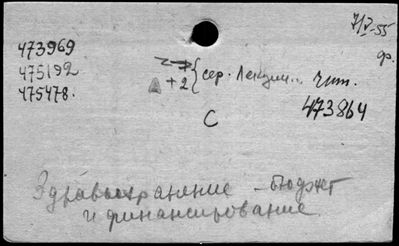 7/V-55
473969
475192
475478.
+2 { сер. Лекции.. Чит.
473864
С
Здравоохранение - бюджет
и финансирование